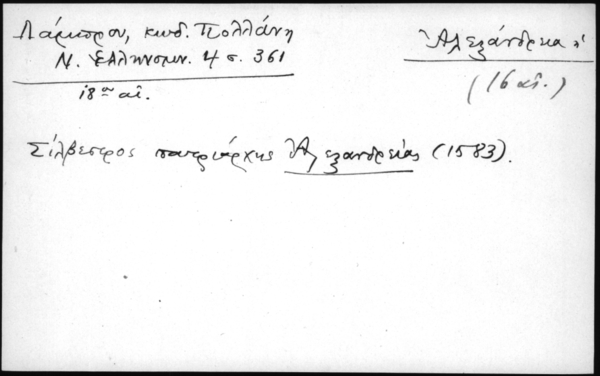 Λάμπρου, κωδ. Πολλάνη
Ν. Ἑλληνομν. 4 σ. 361
18ου αἰ.
Ἀλεξάνδρεια
(16 αἰ.)
Σίλβεστρος πατριάρχης Ἀλεξανδρείας (1583).